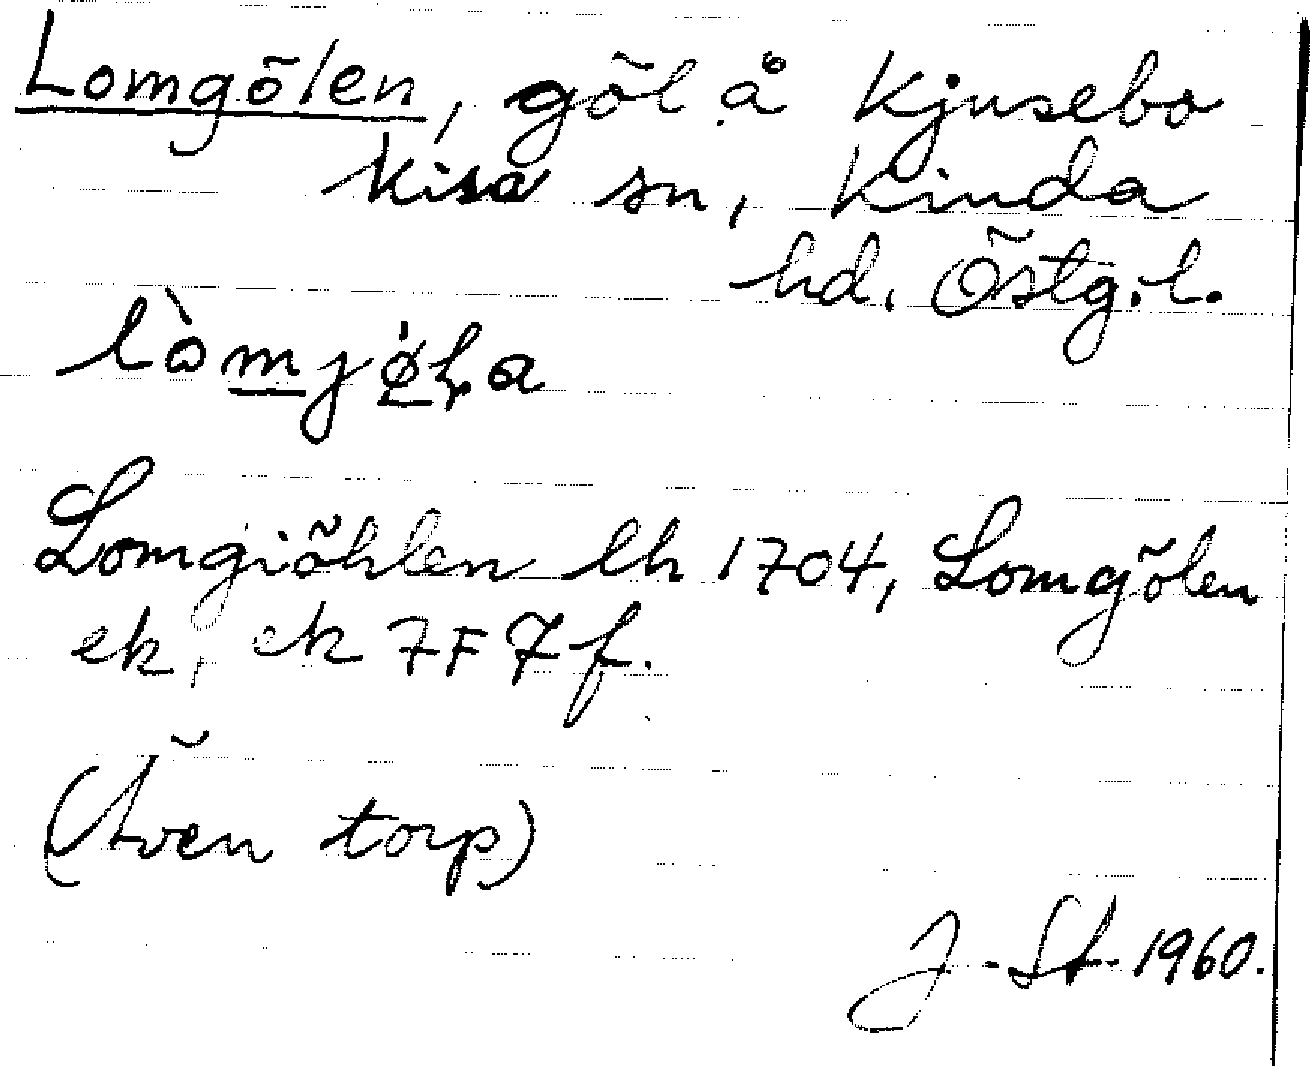 Lomgölen, göl å Kjusebo
Kisa sn, Kinda
hd. Östg.l.
lòmjø̀ḷa
Lomgiöhlen lh 1704, Lomgölen
ek, ek 7F7f.
(Även torp)
J. St. 1960.